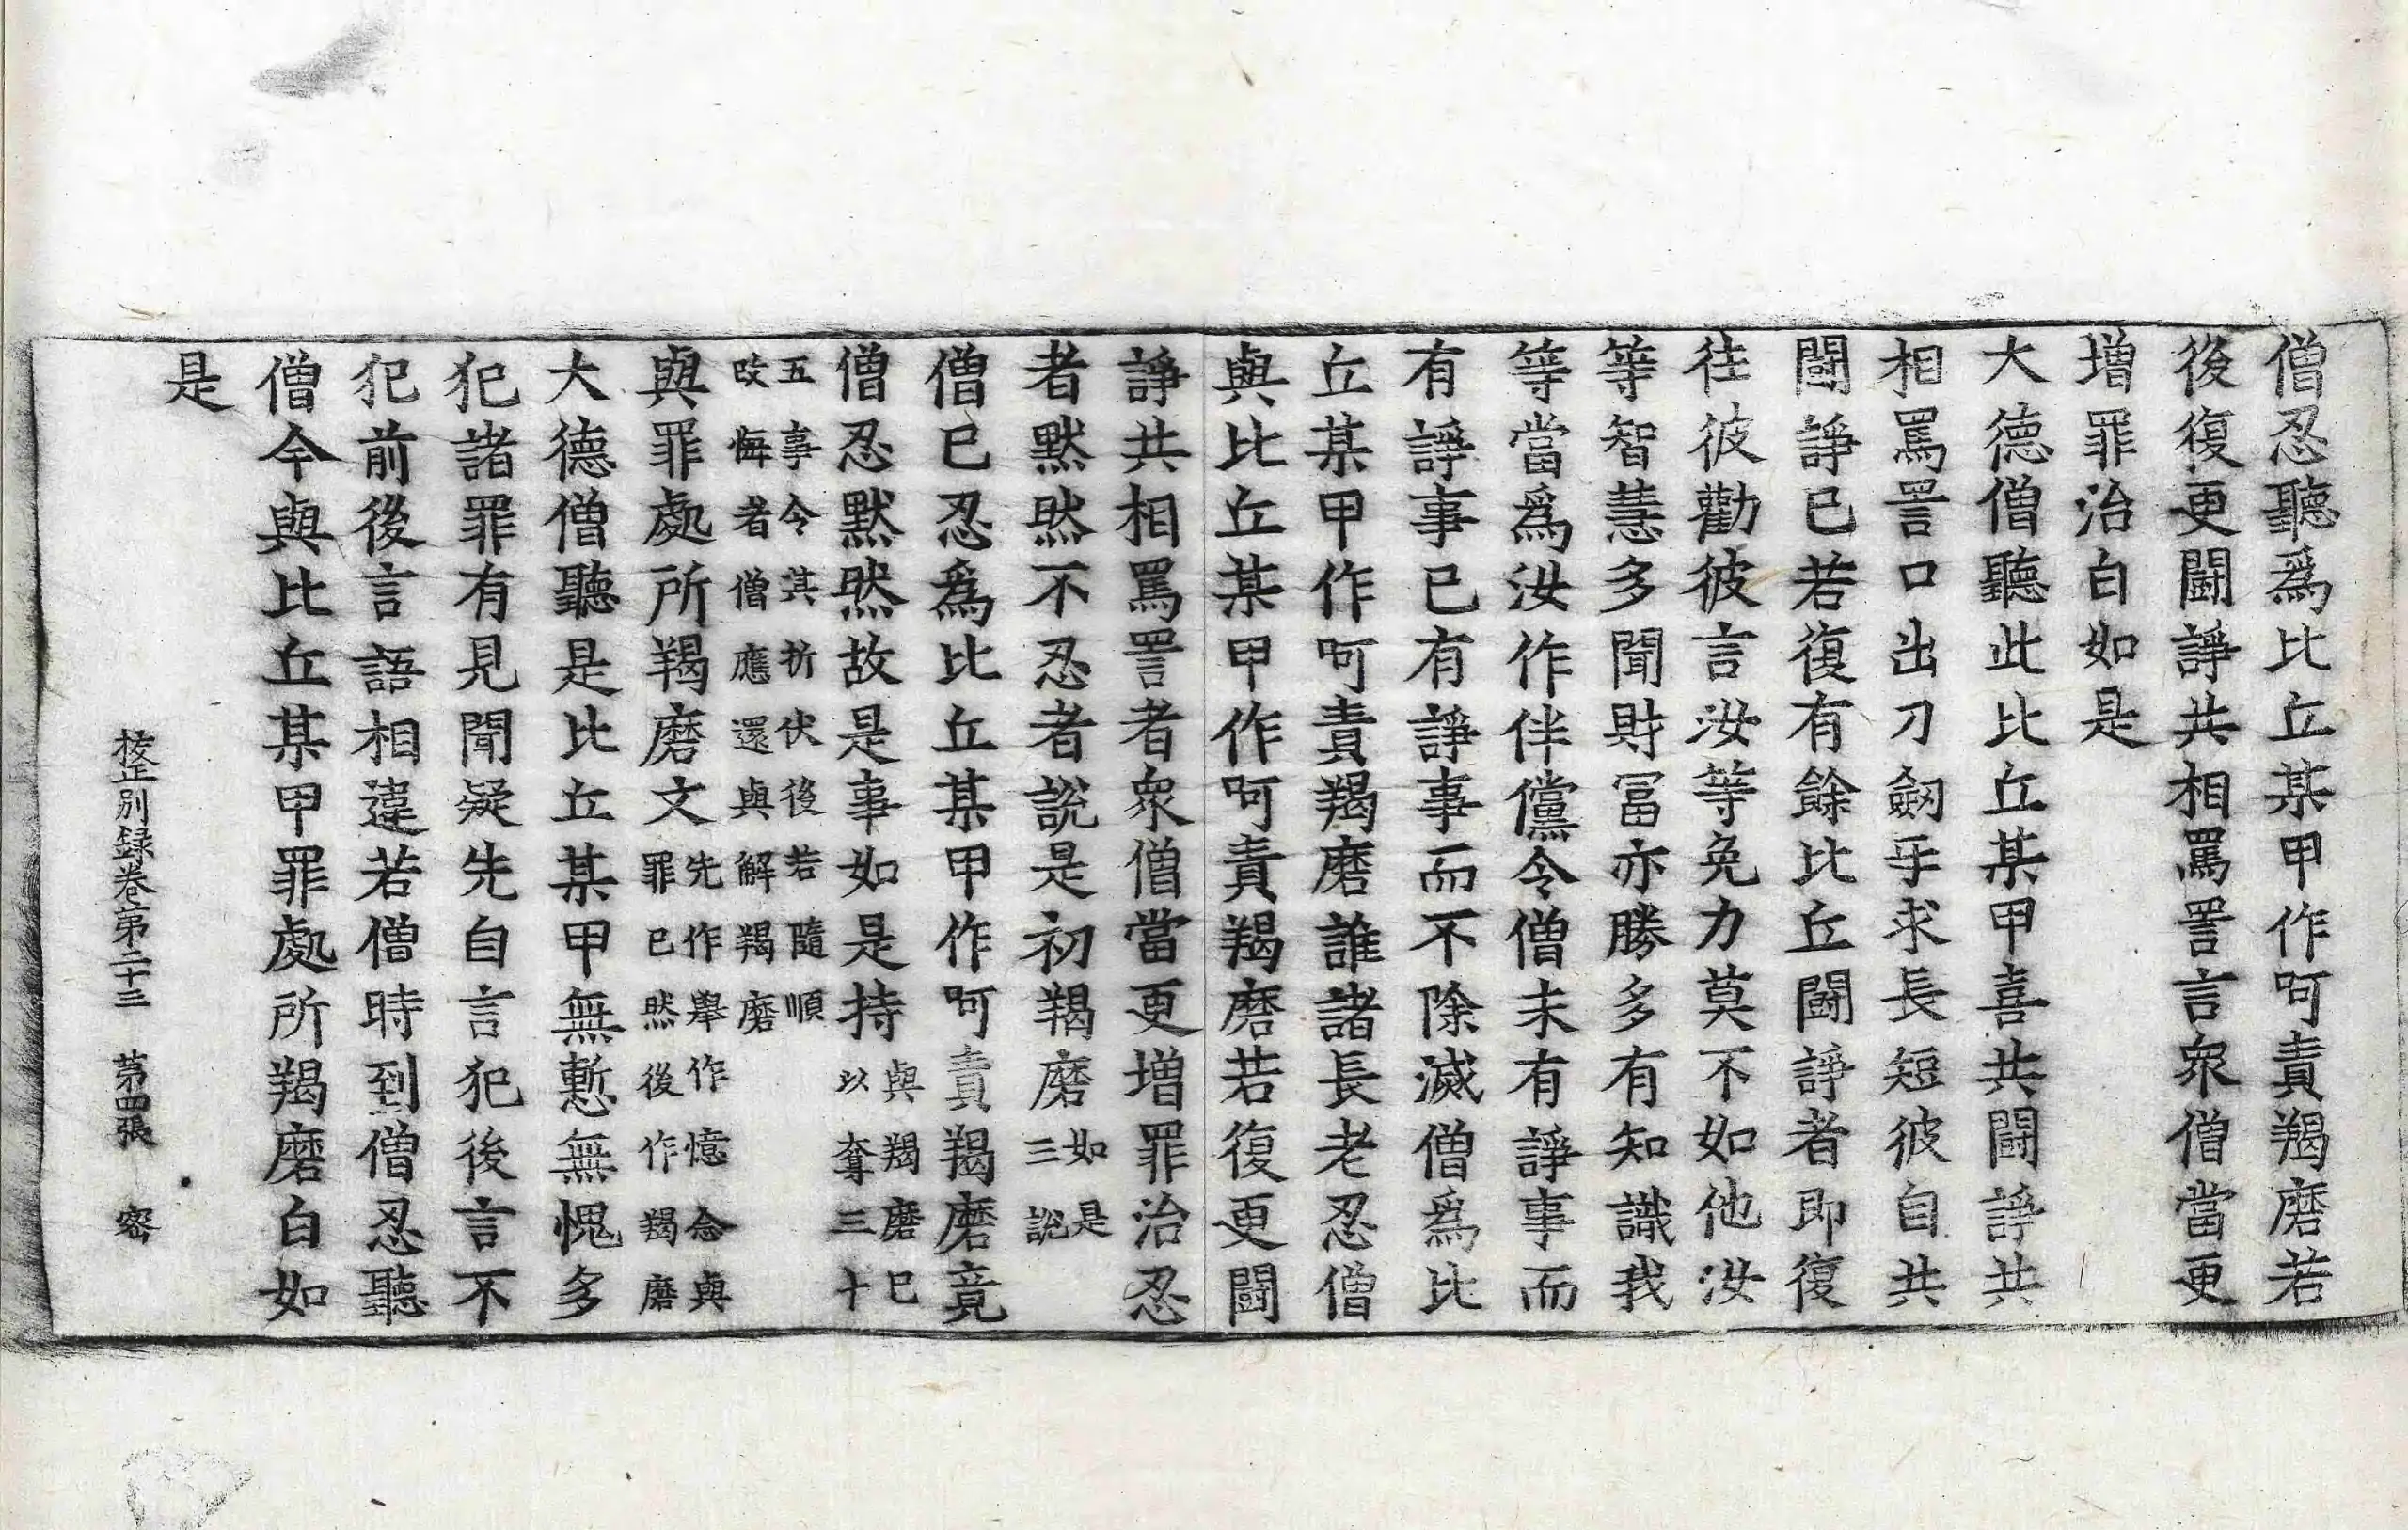 僧忍聽爲比丘某甲作呵責羯磨若
後復更鬪諍共相罵詈言衆僧當更
增罪治白如是
大德僧聽此比丘某甲喜共鬪諍共
相罵詈口出刀劒手求長短彼自共
鬪諍已若復有餘比丘鬪諍者即復
往彼勸彼言汝等免力莫不如他汝
等智慧多聞財冨亦勝多有知識我
等當爲汝作伴儻令僧未有諍事而
有諍事已有諍事而不除滅僧爲比
丘某甲作呵責羯磨誰諸長老忍僧
與比丘某甲作呵責羯磨若復更鬪
諍共相罵詈者衆僧當更增罪治忍
者默然不忍者說是初羯磨如是三說
僧已忍爲比丘某甲作呵責羯磨竟
僧忍默然故是事如是持與羯磨已以奪三十
五事令其折伏後若隨順改悔者僧應還與解羯磨
與罪處所羯磨文先作擧作憶念與罪已然後作羯磨
大德僧聽是比丘某甲無慙無愧多
犯諸罪有見聞疑先自言犯後言不
犯前後言語相違若僧時到僧忍聽
僧今與比丘某甲罪處所羯磨白如
是
挍正別録卷第二十三 第四張 密